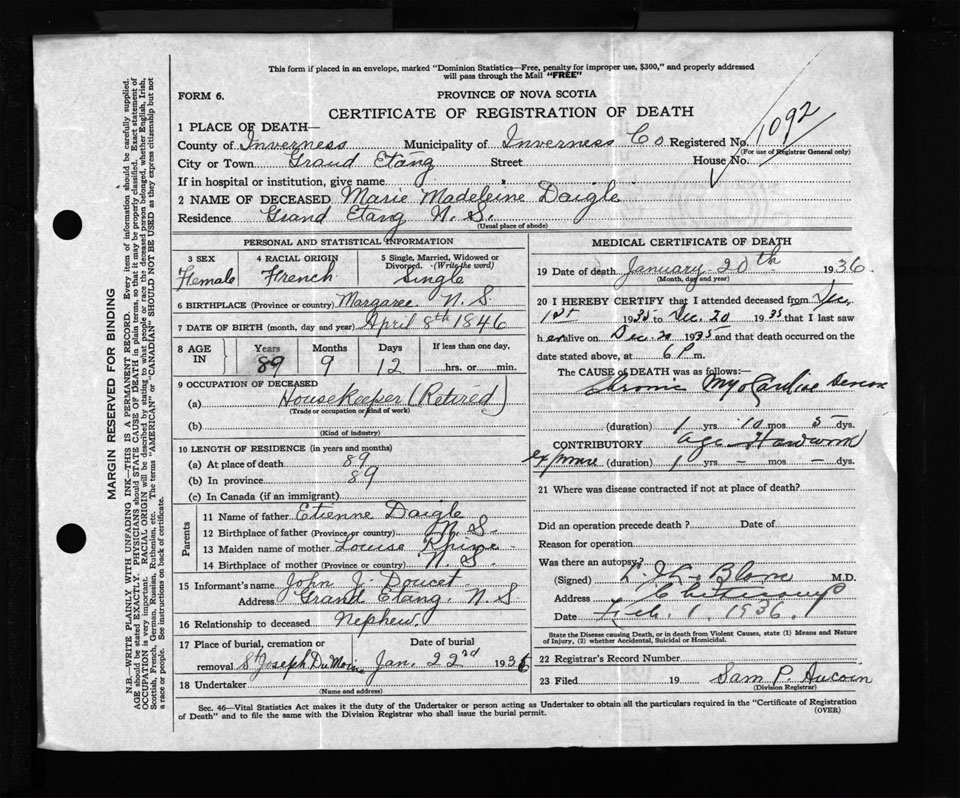 This form if placed in an envelope, marked "Dominion Statistics—Free, penalty for improper use, $300," and properly addressed
will pass through the Mail "FREE"
FORM 6.
PROVINCE OF NOVA SCOTIA
CERTIFICATE OF REGISTRATION OF DEATH
1092
1 PLACE OF DEATH—
County of Inverness Municipality of Inverness Co Registered No.
(For use of Registrar General only)
City or Town Grand Etang Street House No.
If in hospital or institution, give name
2 NAME OF DECEASED Marie Madeleine Daigle
Residence Grand Etang N. S.
(Usual place of abode)
PERSONAL AND STATISTICAL INFORMATION
3 SEX 4 RACIAL ORIGIN 5 Single, Married, Widowed or
Divorced. (Write the word)
Female French Single
6 BIRTHPLACE (Province or country) Margaree N. S.
7 DATE OF BIRTH (month, day and year) April 8th 1846
8 AGE IN Years Months Days If less than one day,
89 9 12 hrs. or min.
9 OCCUPATION OF DECEASED
(a) Housekeeper (Retired)
(Trade or occupation or kind of work)
(b)
(Kind of industry)
10 LENGTH OF RESIDENCE (in years and months)
(a) At place of death 89
(b) In province 89
(c) In Canada (if an immigrant)
Parents
11 Name of father Etienne Daigle
12 Birthplace of father (Province or country) N. S.
13 Maiden name of mother Louise
14 Birthplace of mother (Province or country) N. S.
15 Informant's name John J. Doucet
Address Grand Etang. N. S.
16 Relationship to deceased Nephew.
17 Place of burial, cremation or Date of burial
removal St Joseph Du Moine Jan. 22nd 1936
18 Undertaker
(Name and address)
MEDICAL CERTIFICATE OF DEATH
19 Date of death January 20th 1936.
(Month, day and year)
20 I HEREBY CERTIFY that I attended deceased from Dec.
1st 1935 to Dec. 20 1935 that I last saw
h er alive on Dec. 20 1935 and that death occurred on the
date stated above, at 6 P m.
The CAUSE OF DEATH was as follows:—
Chronic Myocardial
(duration) 1 yrs 10 mos 5 dys.
CONTRIBUTORY age
(duration) 1 yrs – mos – dys.
21 Where was disease contracted if not at place of death?
Did an operation precede death? Date of
Reason for operation
Was there an autopsy?
(Signed) M.D.
Address
Date Feb. 1. 1936.
State the Disease causing Death, or in death from Violent Causes, state (1) Means and Nature
of Injury, (2) whether Accidental, Suicidal or Homicidal.
22 Registrar's Record Number
23 Filed 19 Sam P. Aucoin
(Division Registrar)
Sec. 46—Vital Statistics Act makes it the duty of the Undertaker or person acting as Undertaker to obtain all the particulars required in the "Certificate of Registration
of Death" and to file the same with the Division Registrar who shall issue the burial permit.
(OVER)
MARGIN RESERVED FOR BINDING
N.B.—WRITE PLAINLY WITH UNFADING INK—THIS IS A PERMANENT RECORD. Every item of information should be carefully supplied.
AGE should be stated EXACTLY. PHYSICIANS should STATE CAUSE OF DEATH in plain terms, so that it may be properly classified. Exact statement of
OCCUPATION is very important. RACIAL ORIGIN will be described by stating to what people or race the deceased person belonged, whether English, Irish,
Scottish, French, German, Russian, Ruthenian, etc. The terms "AMERICAN" or "CANADIAN" SHOULD NOT BE USED as they express citizenship but not
a race or people. See instructions on back of certificate.